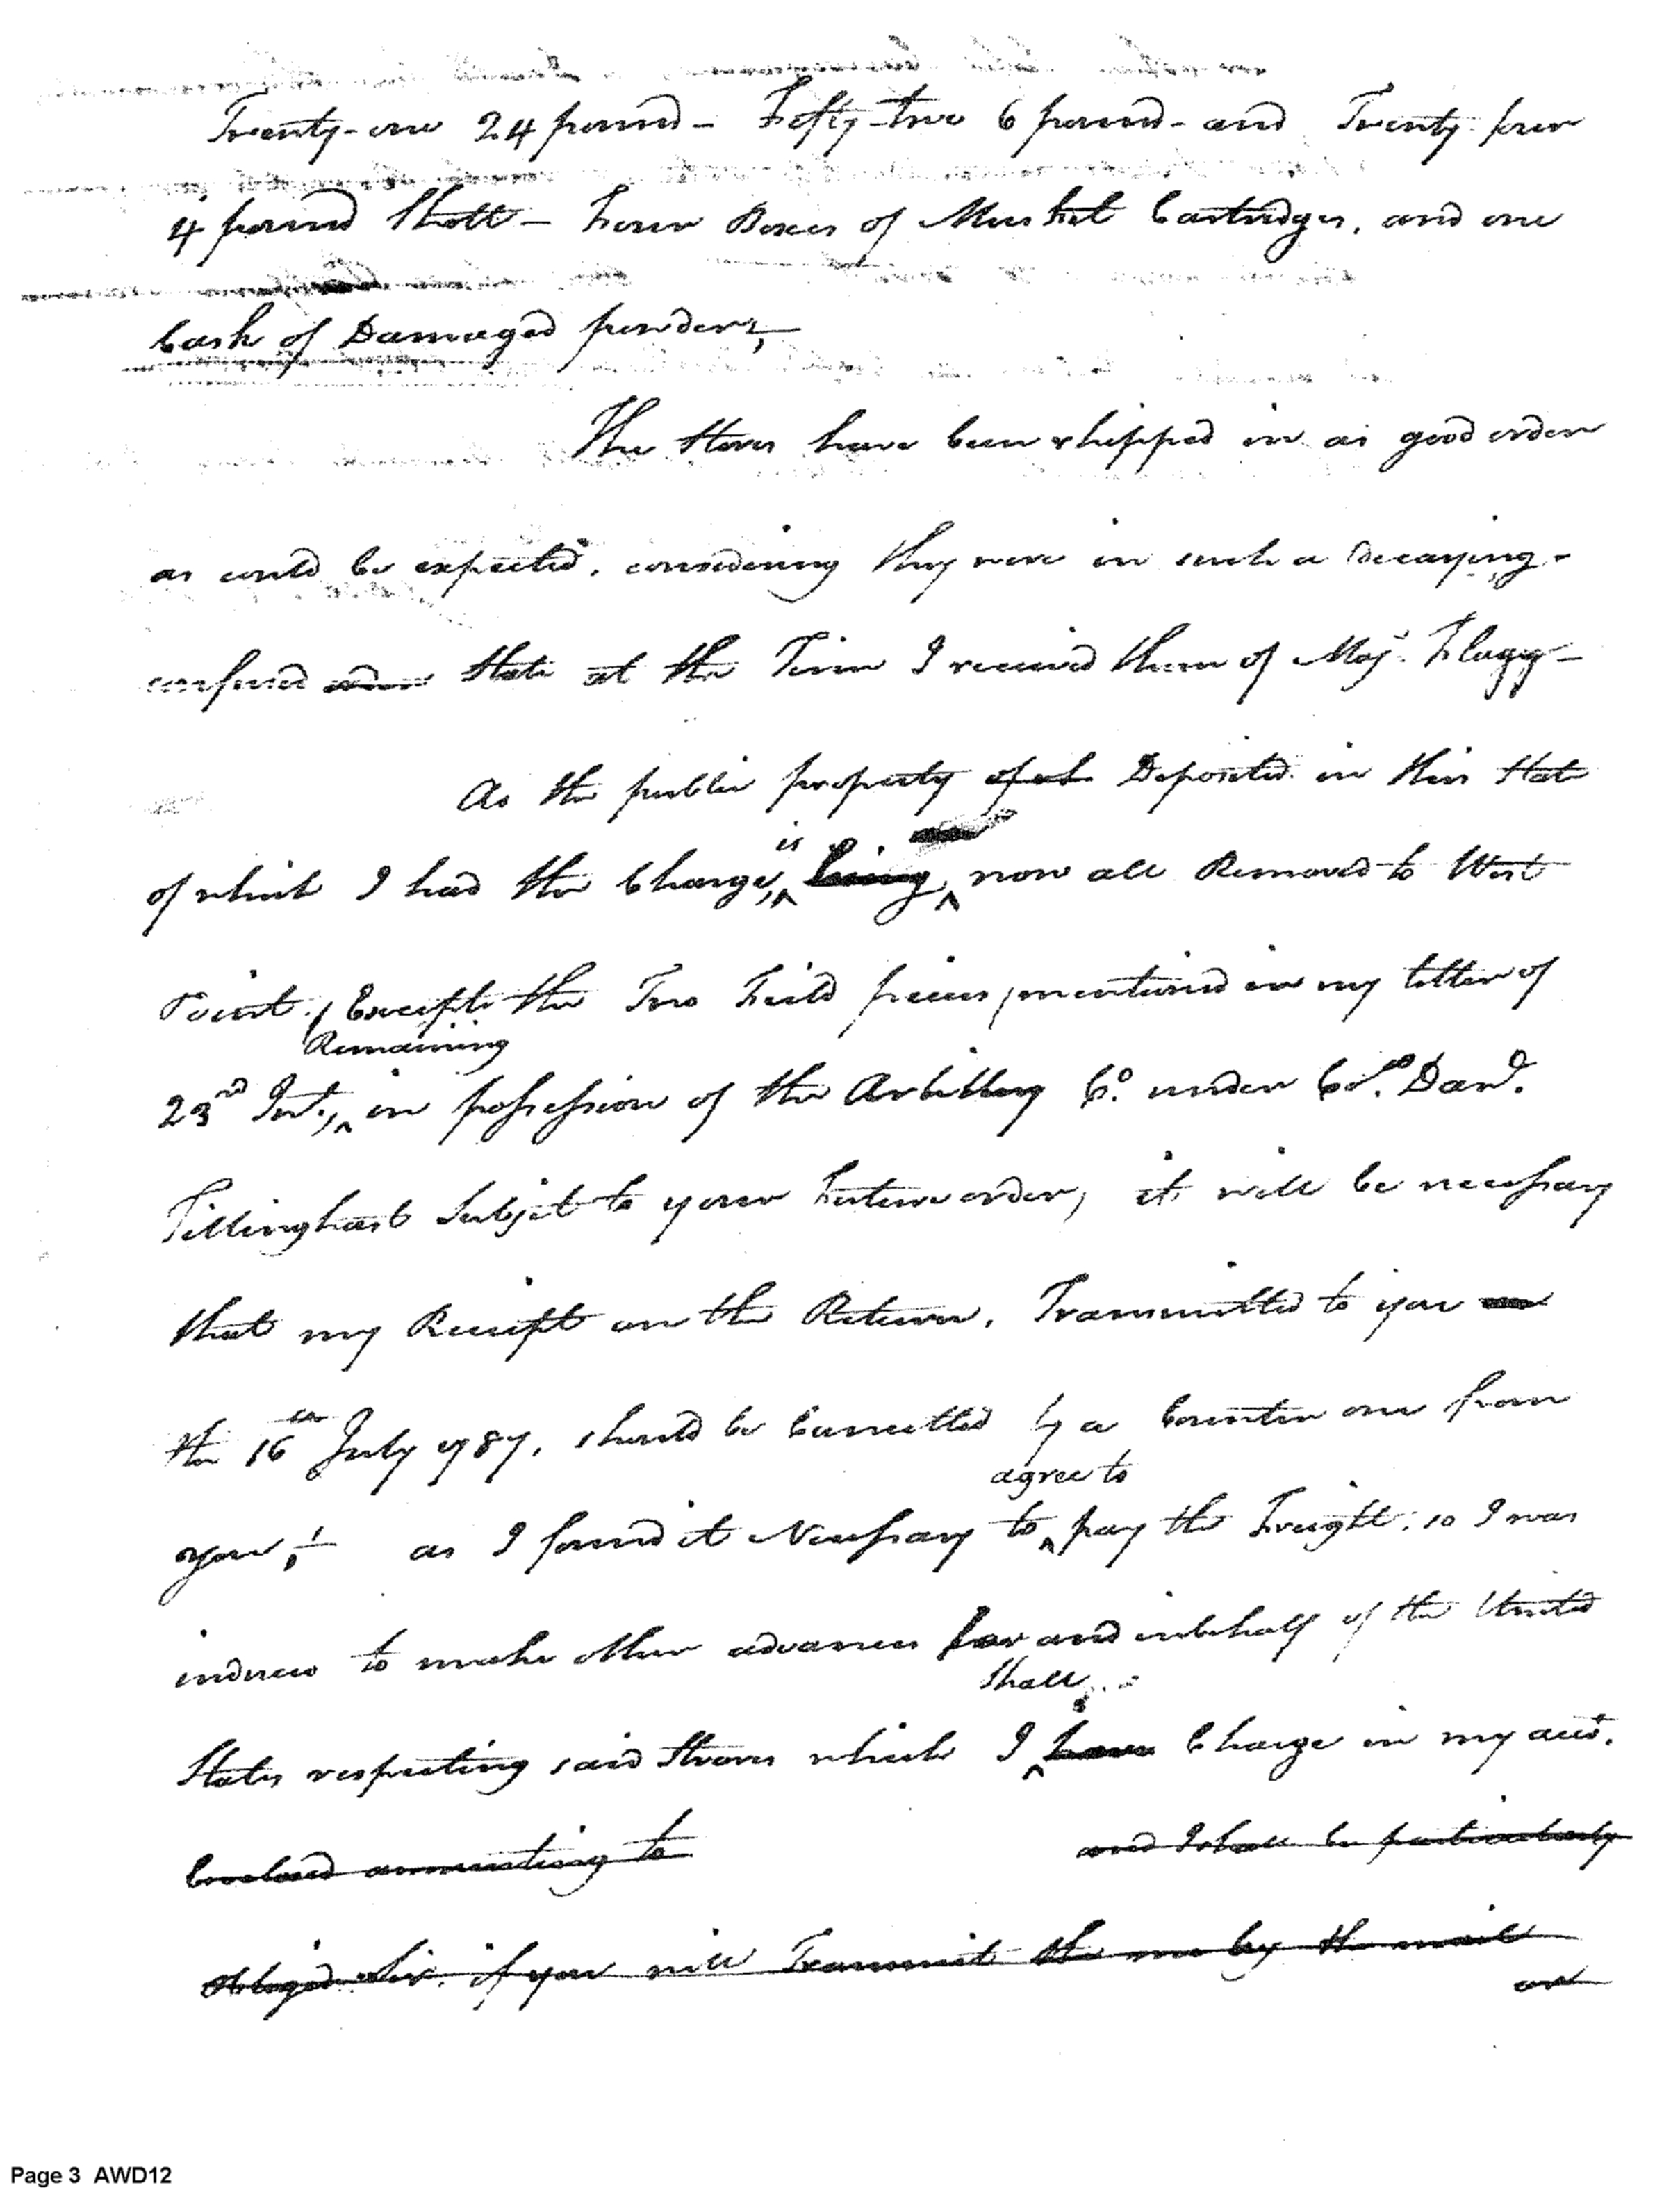 Twenty-one 24 pound - Fifty-two 6 pound - and Twenty four
4 pound Shott - Four Boxes of Musket Cartridges, and one
Cask of Damaged powder;
The Stores have been shipped in as good order
as could be expected, considering they were in such a decaying -
confused state at the Time I received them of Maj. Flagg -
As the public property Deposited in this State
is
of which I had the Charge, being, now all Removed to West
Point, Except the Two Field pieces, mentioned in my letter of
Remaining
23rd Inst., in possession of the Artillery Co. under Col. Danl.
Tillinghast Subject to your Future order, it will be necessary
that my Receipt on the Return, Transmitted to you
the 16th July 1787, should be Cancelled by a Counter one from
agree to
you; as I found it Necessary to pay the Freight, so I was
induced to make other advances for and in behalf of the United
Shall
States respecting said Stores which I have Charge in my acct.
Enclosed ammounting to and I shall be particularly
Obliged Sir, if you will Transmit the me by the mail